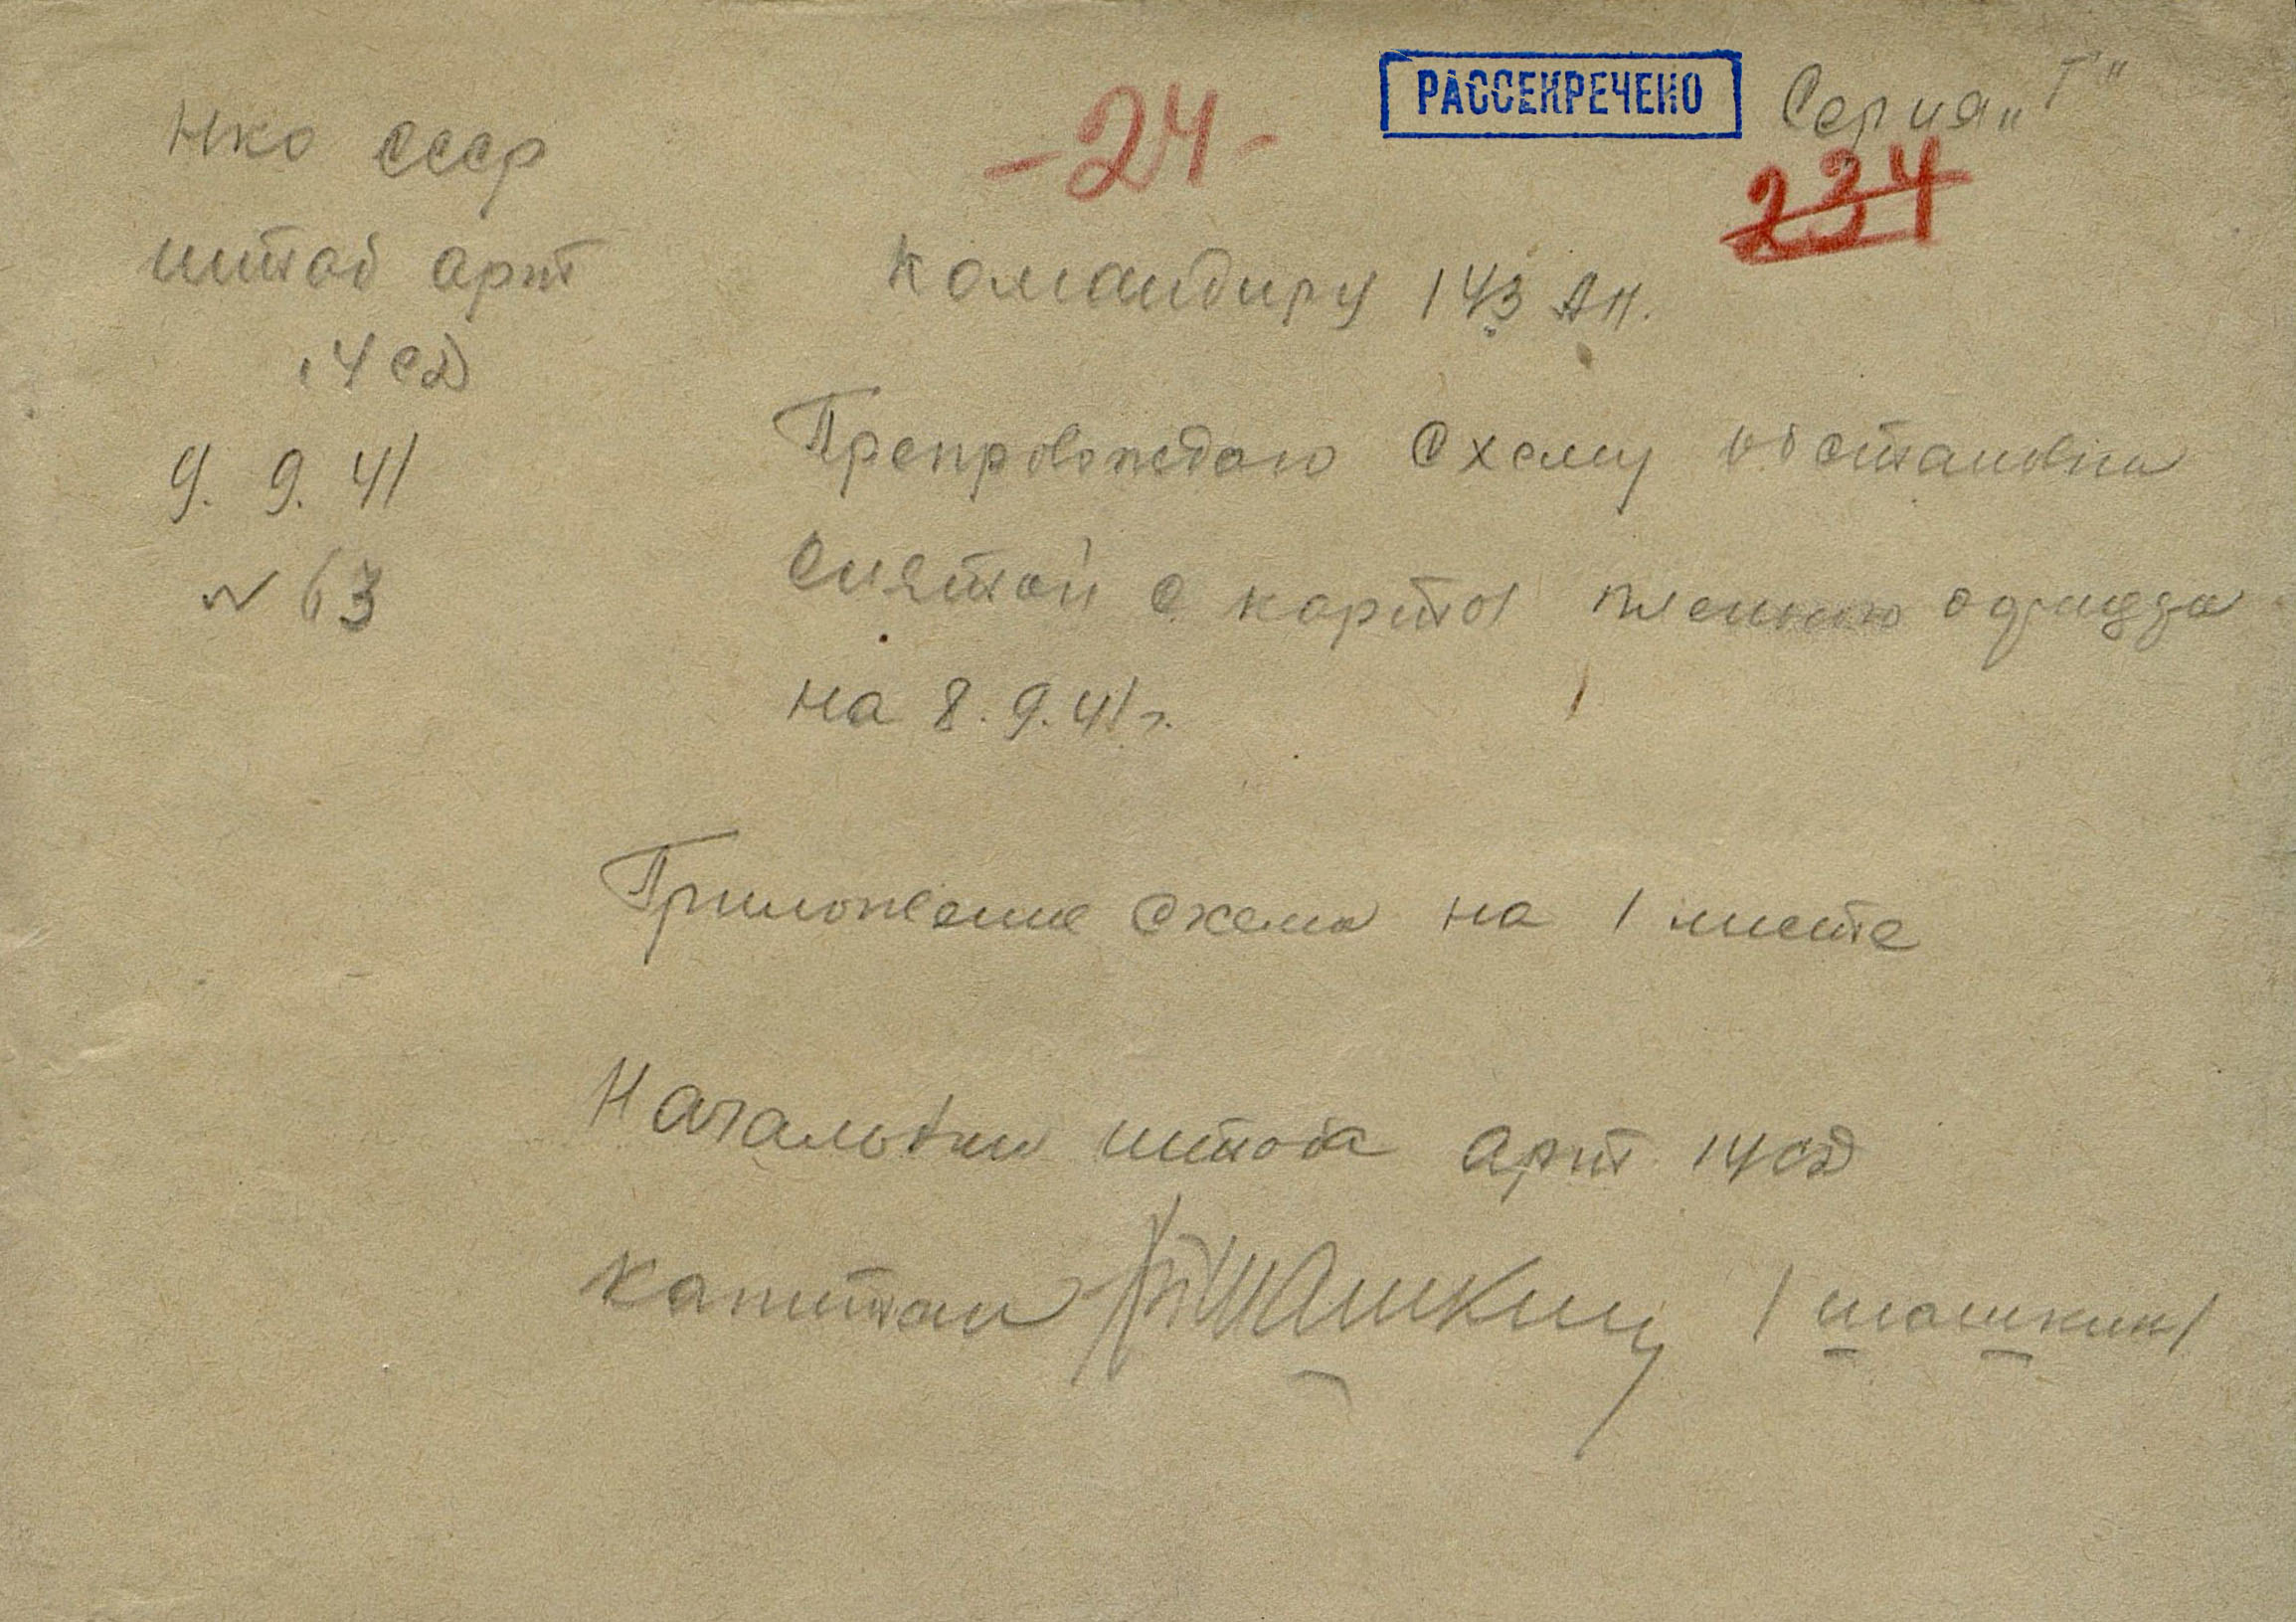 РАССЕКРЕЧЕНО
Серия „Г"
-24-
234
НКО СССР
штаб арт
14 сд
9. 9. 41
№ 63
Командиру 143 АП.
Препровождаю схему обстановки
снятой с карты пленного офицера
на 8. 9. 41 г.
Приложение схема на 1 листе
Начальник штаба арт. 14 сд
капитан Шашкин /Шашкин/